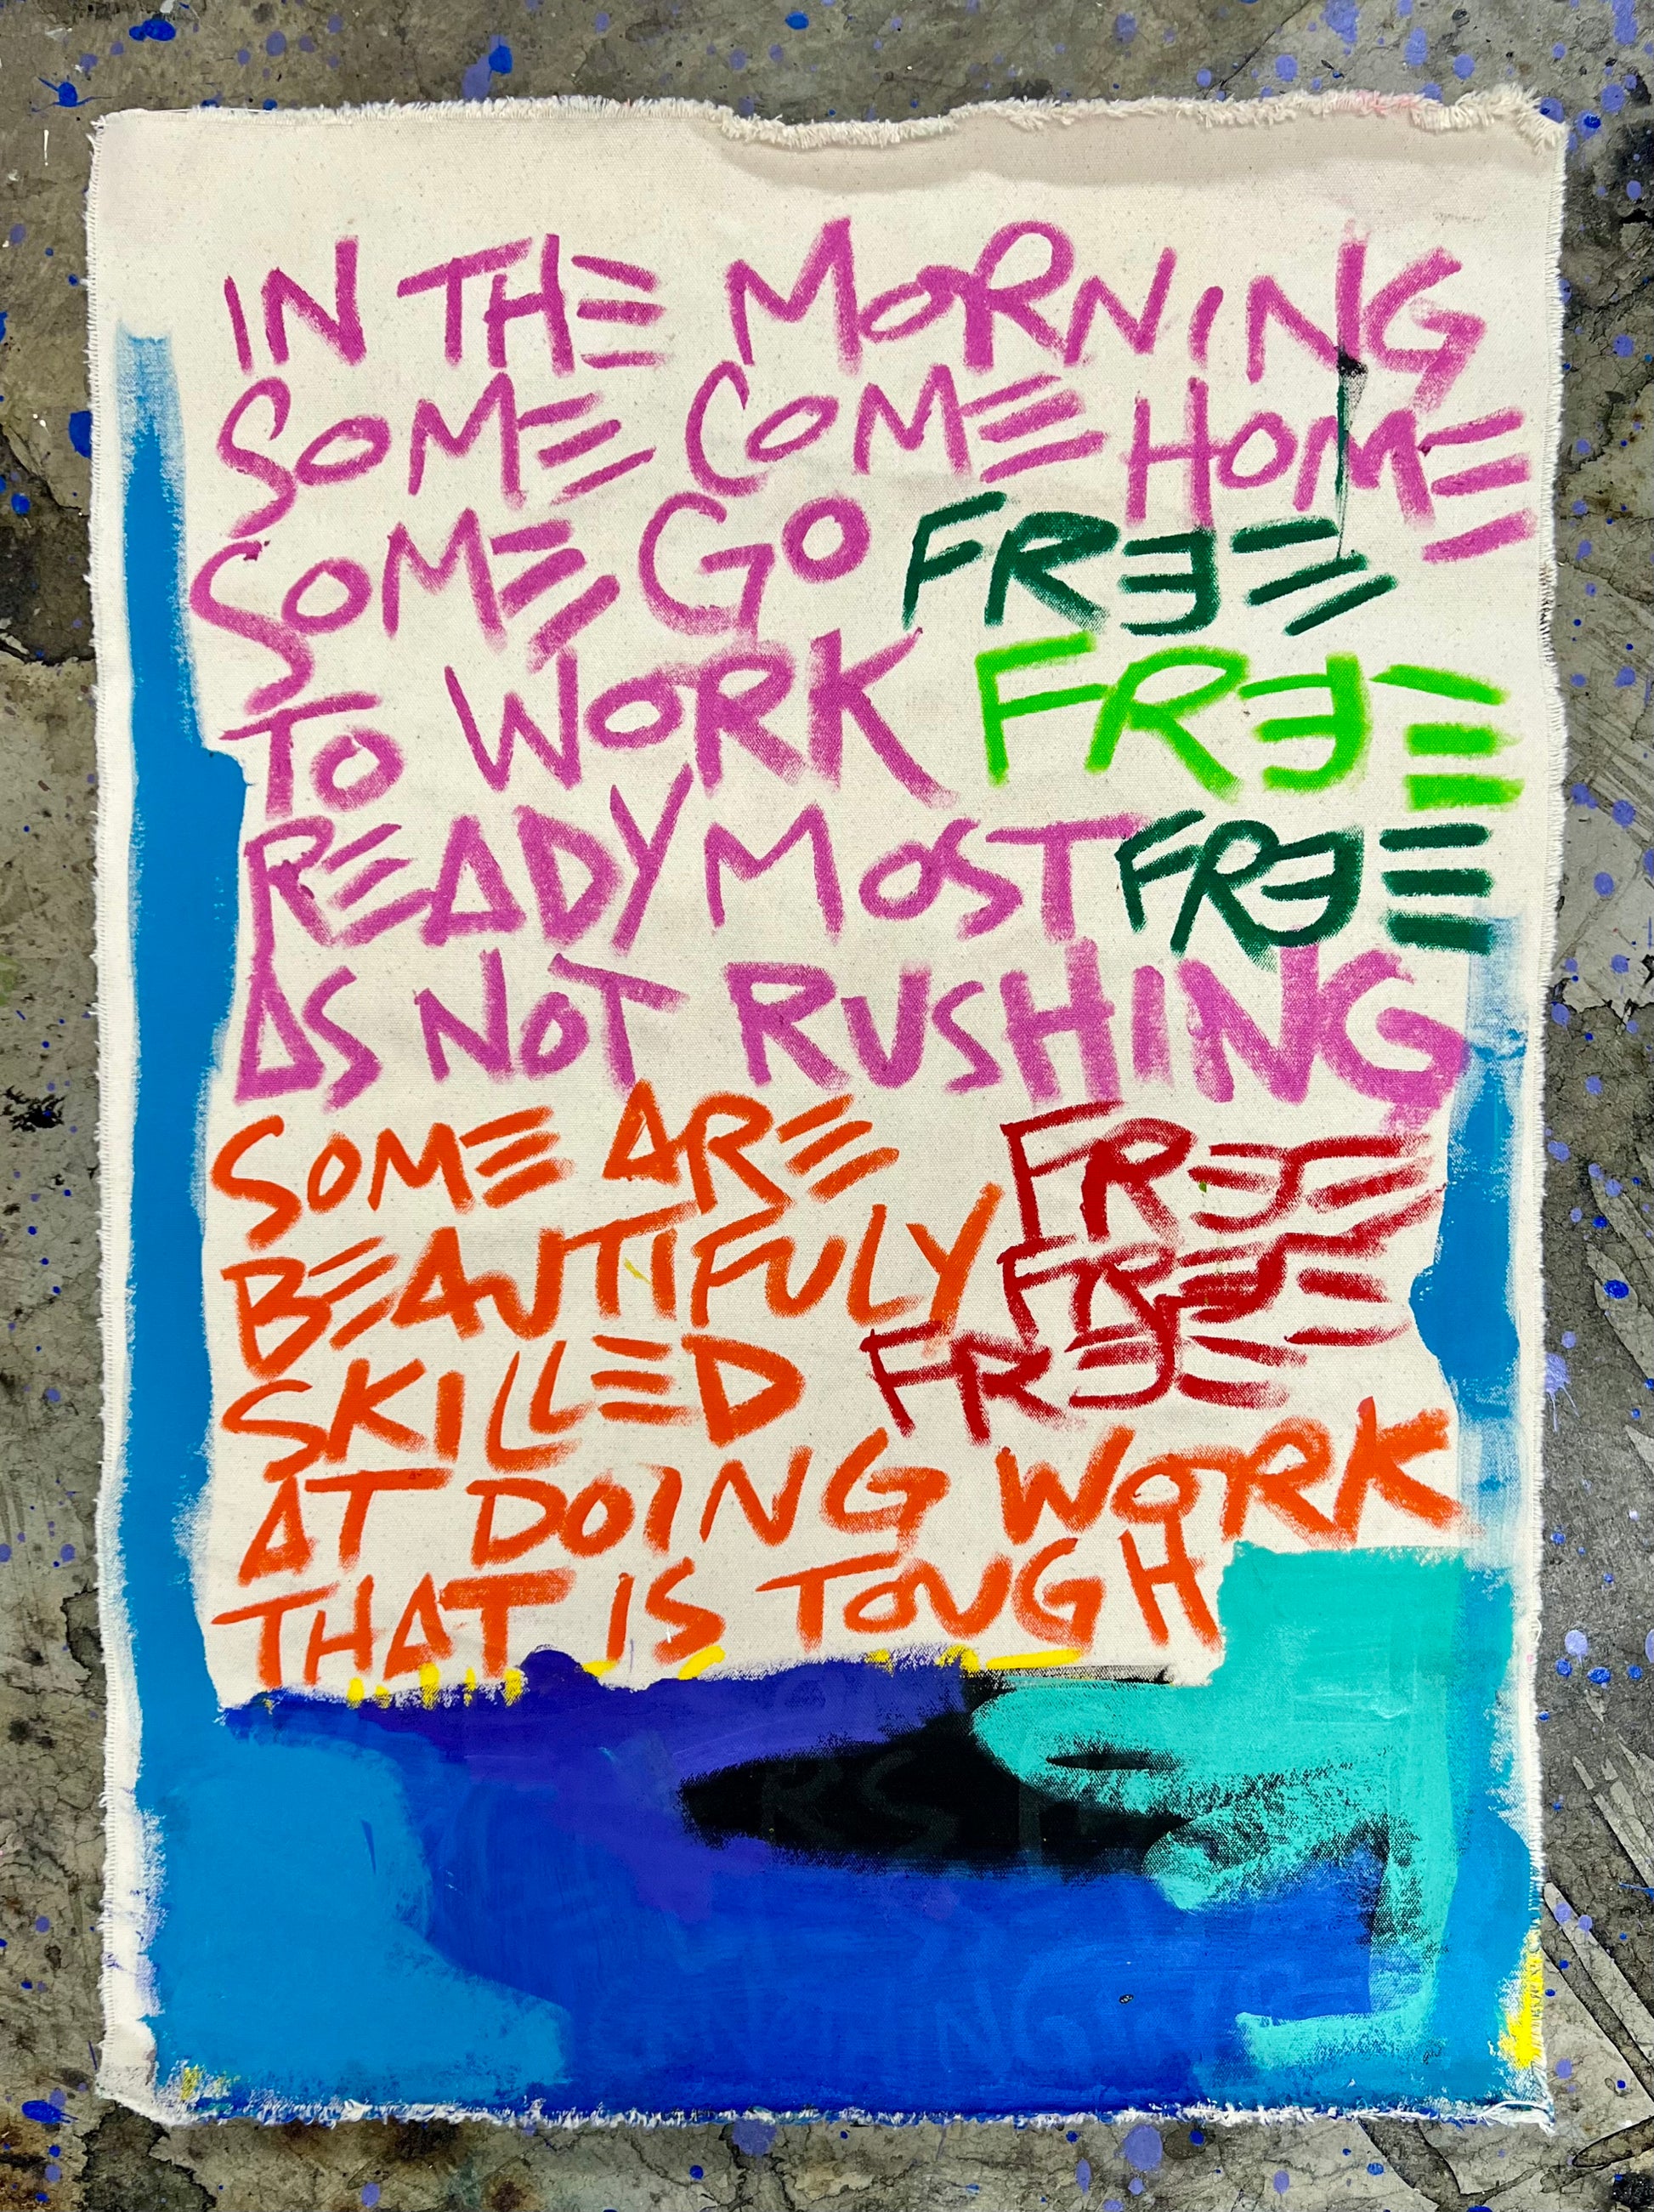 IN THE MORNING
SOME COME HOME
SOME GO FREE
TO WORK FREE
READY MOST FREE
AS NOT RUSHING
SOME ARE FREE
BEAUTIFULY FREE
SKILLED FREE
AT DOING WORK
THAT IS TOUGH